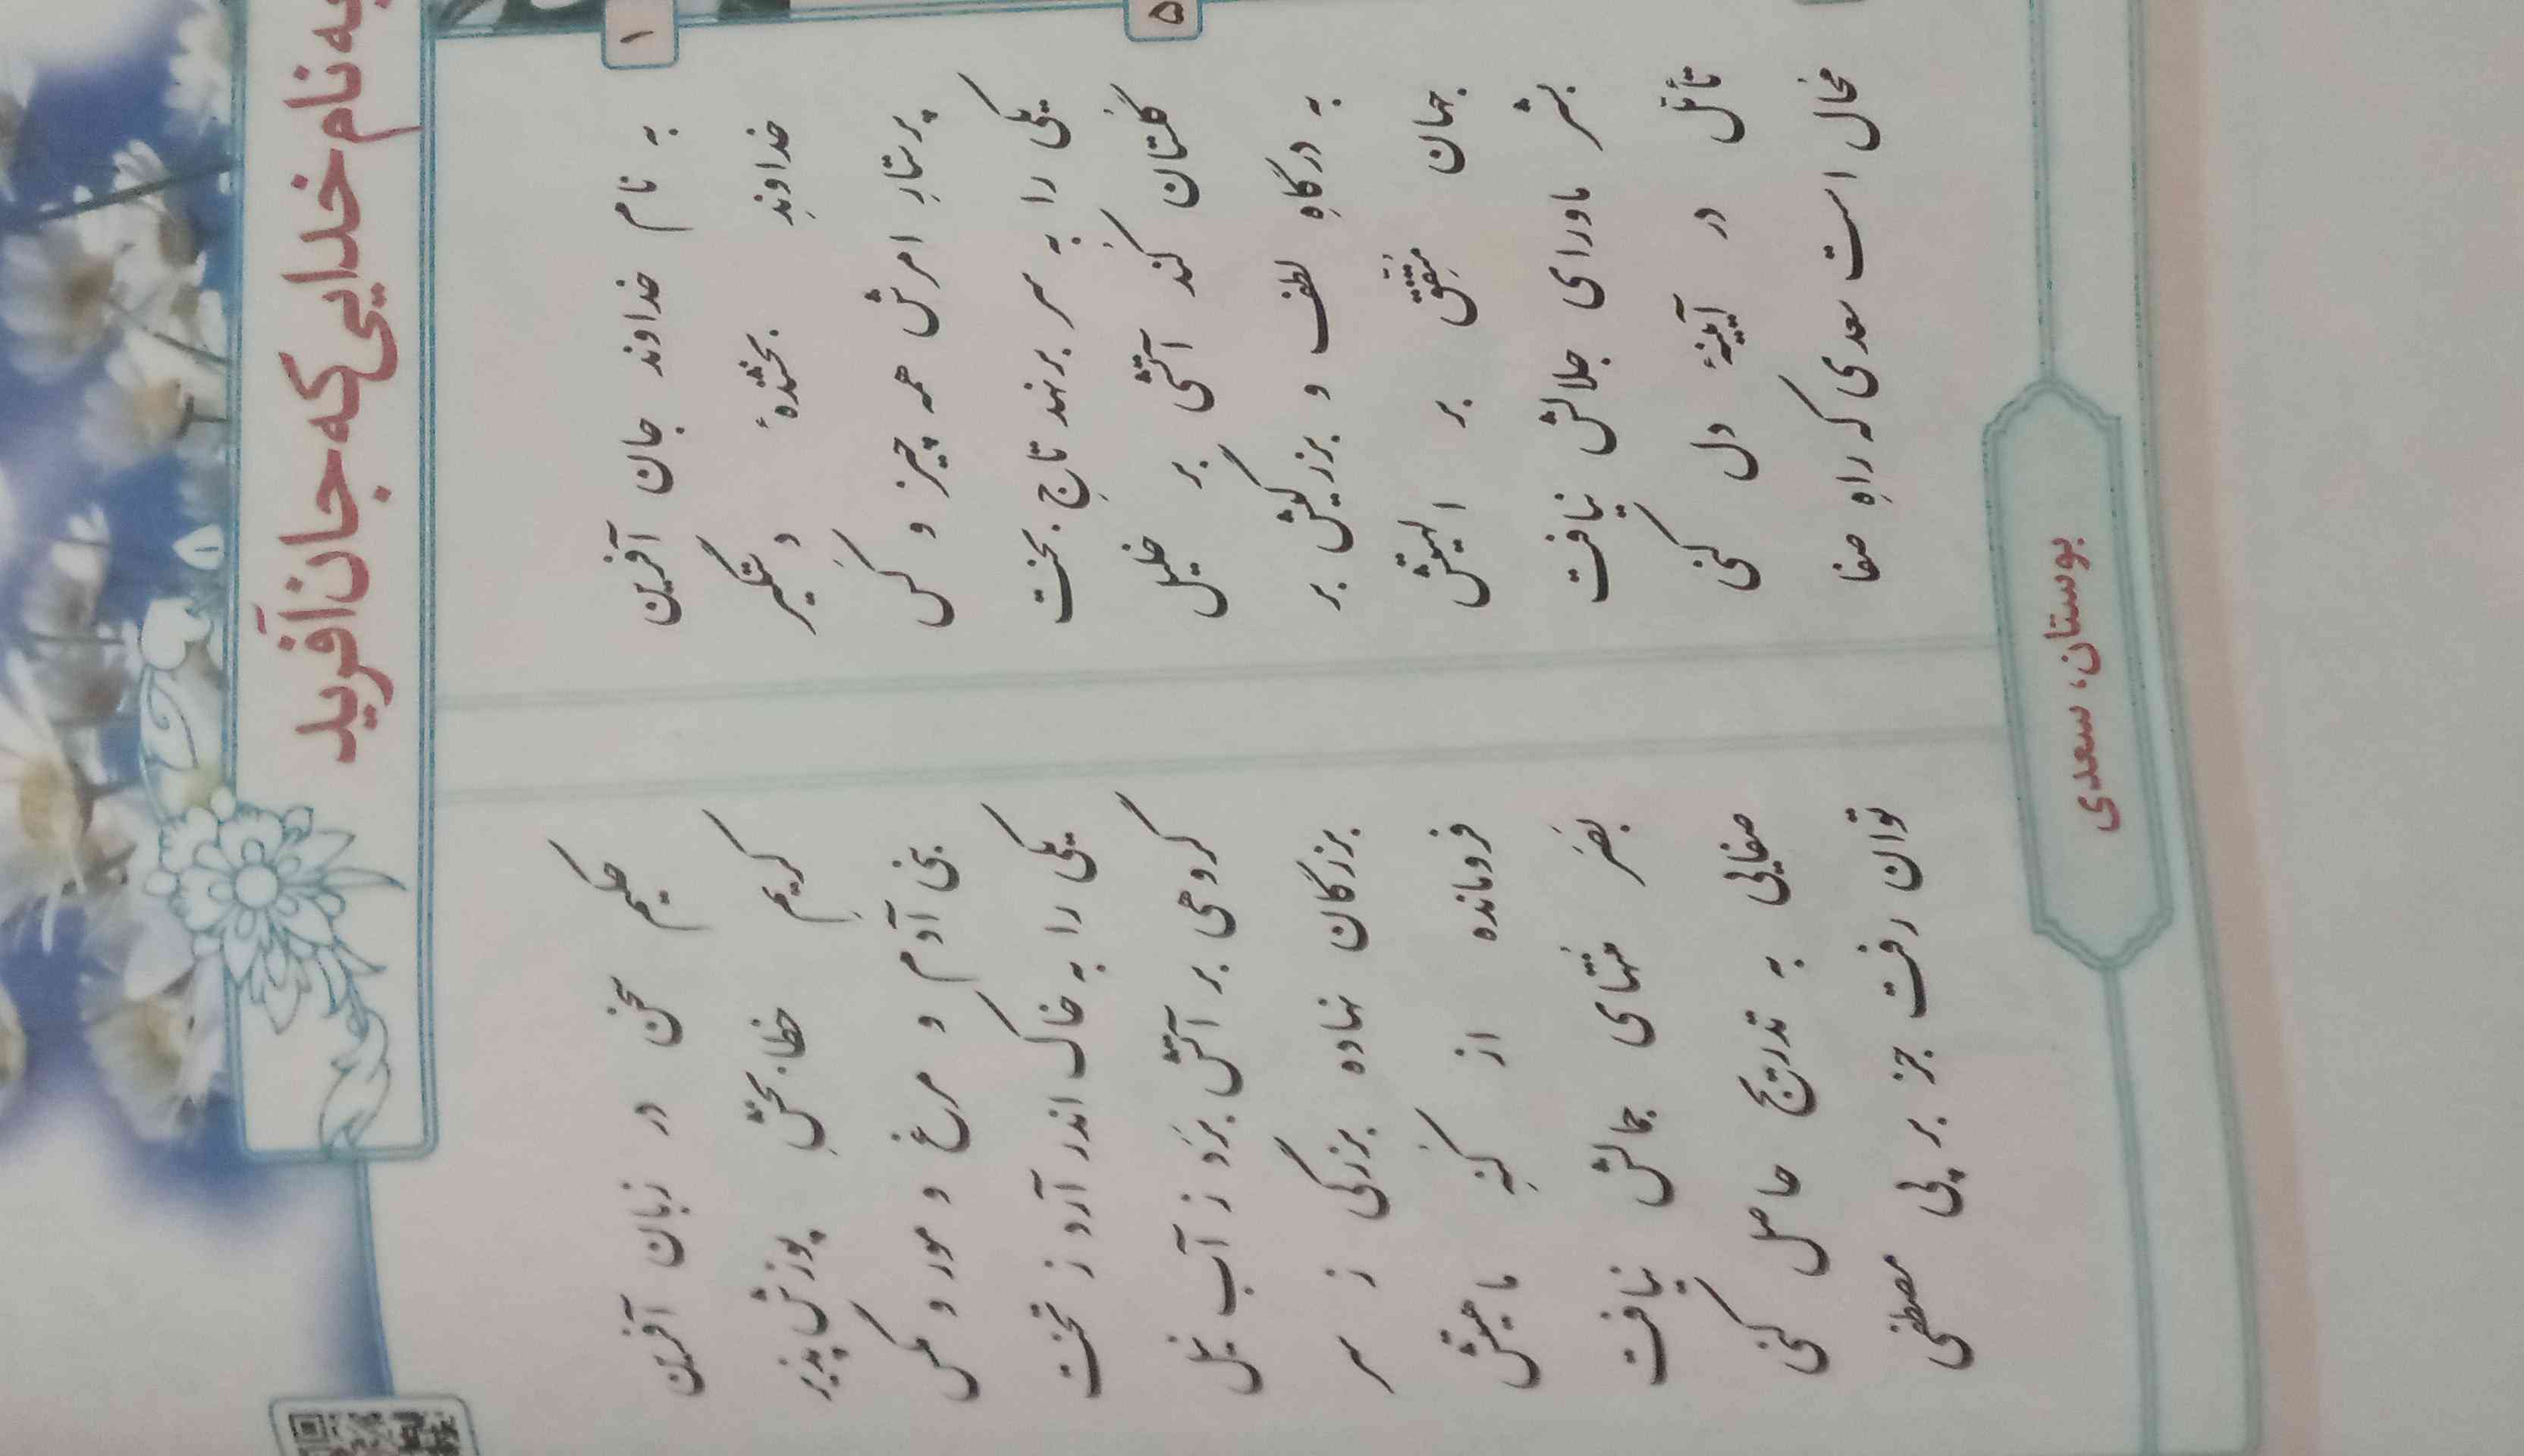 به نام خدایی که جان آفرید
۱
به نام خداوند جان آفرین حکیم سخن در زبان آفرین
خداوندِ بخشندهٔ دستگیر کریمِ خطابخشِ پوزش پذیر
پرستارِ امرش همه چیز و کَس بنی آدم و مرغ و مور و مگس
یکی را به سر برنهد تاجِ بخت یکی را به خاک اندر آرد ز تخت
۵
گُلستان کُند آتشی بر خلیل گروهی بر آتش بَرَد ز آب نیل
به درگاهِ لطف و بزرگیش بر بزرگان نهاده بزرگی ز سر
جهان مُتَّفِق بر الهیتش فرومانده از کُنهِ ماهیتش
بشر ماورای جلالش نیافت بَصَر مُنتهای جمالش نیافت
تأمّل در آیینهٔ دل کنی صفایی به تدریج حاصل کنی
مُحال است سعدی که راهِ صفا توان رفت جز بر پی مصطفی
بوستان، سعدی